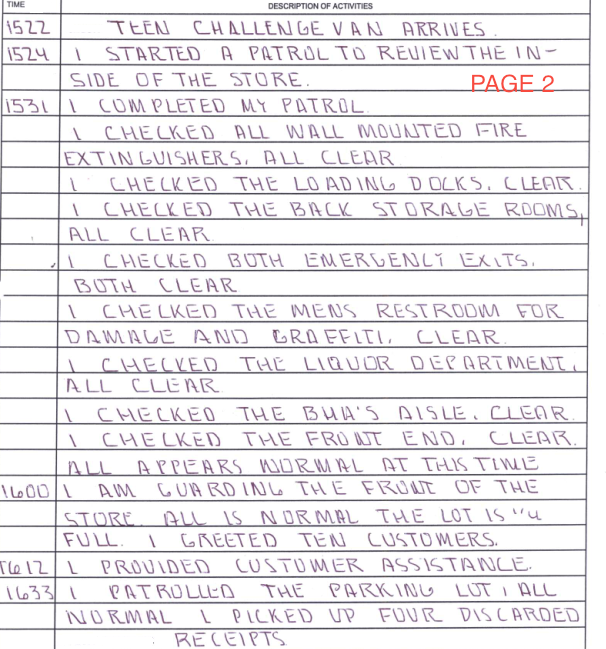 TIME DESCRIPTION OF ACTIVITIES
1522 TEEN CHALLENGE VAN ARRIVES.
1524 I STARTED A PATROL TO REVIEW THE IN-
SIDE OF THE STORE.
PAGE 2
1531 I COMPLETED MY PATROL.
I CHECKED ALL WALL MOUNTED FIRE
EXTINGUISHERS, ALL CLEAR
I CHECKED THE LOADING DOCKS, CLEAR.
I CHECKED THE BACK STORAGE ROOMS,
ALL CLEAR.
I CHECKED BOTH EMERGENCY EXITS.
BOTH CLEAR
I CHECKED THE MENS RESTROOM FOR
DAMAGE AND GRAFFITI, CLEAR.
I CHECKED THE LIQUOR DEPARTMENT,
ALL CLEAR
I CHECKED THE BHA'S AISLE, CLEAR.
I CHECKED THE FRONT END, CLEAR.
ALL APPEARS NORMAL AT THIS TIME
1600 I AM GUARDING THE FRONT OF THE
STORE. ALL IS NORMAL THE LOT IS
FULL. I GREETED TEN CUSTOMERS.
1612 I PROVIDED CUSTOMER ASSISTANCE.
1633 I PATROLLED THE PARKING LOT, ALL
NORMAL I PICKED UP FOUR DISCARDED
RECEIPTS